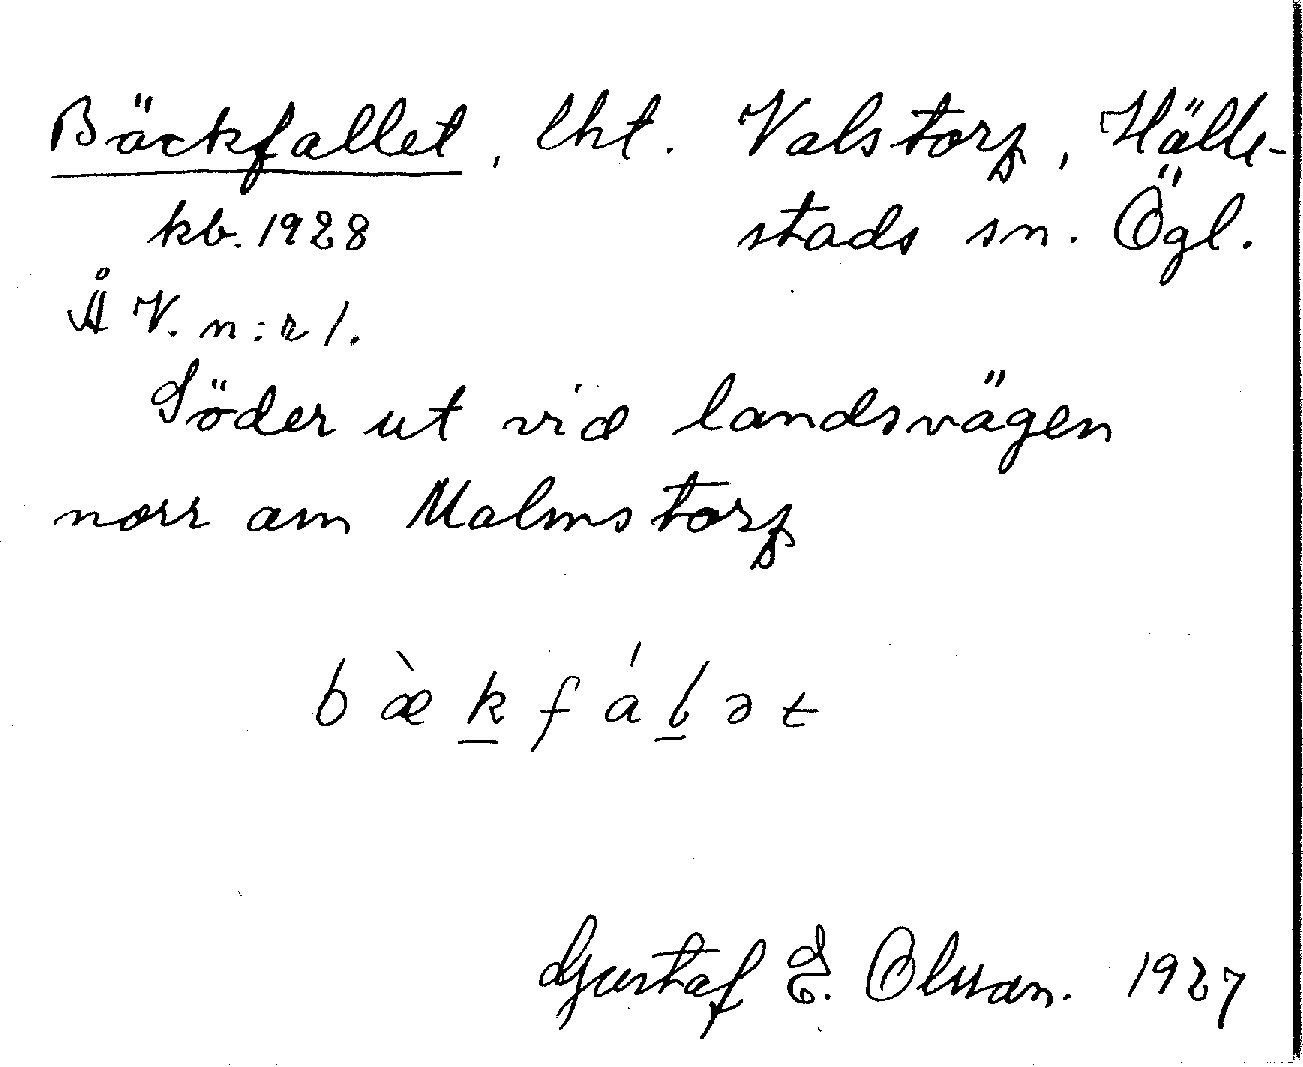 Bäckfallet, lht. Valstorp, Hälle-
kb. 1928 stads sn. Ögl.
Å V. n:r 1.
Söder ut vid landsvägen
norr om Malmstorp
b æ̀ k̲ f á l̲ ə t
Gustaf E. Olsson. 1927